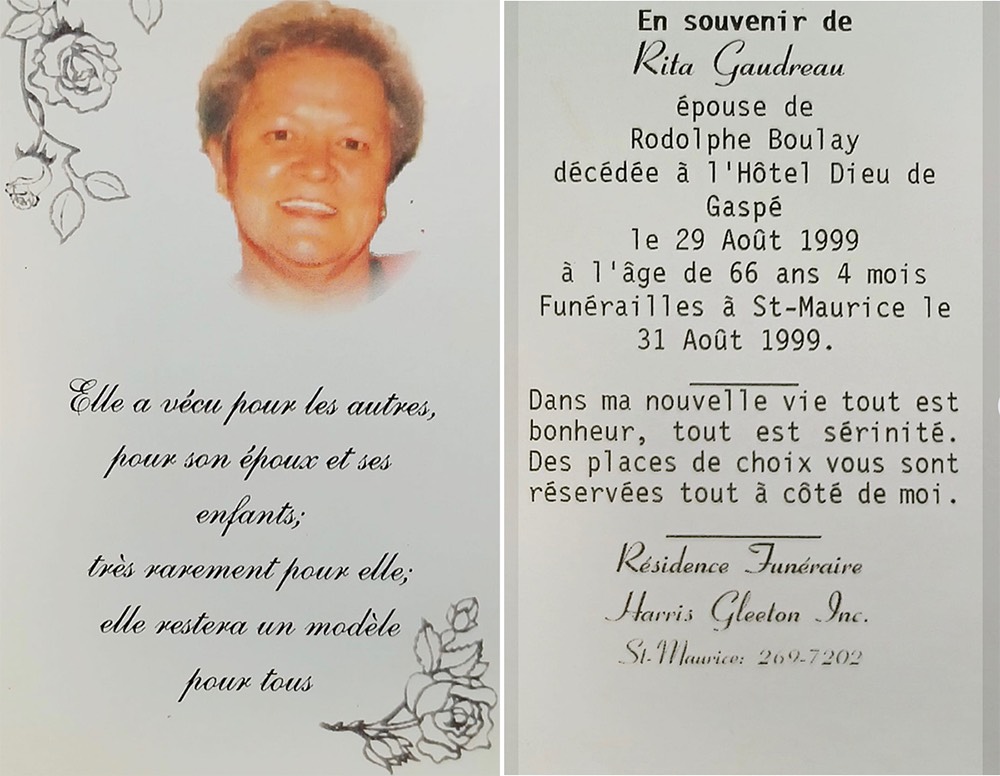 Elle a vécu pour les autres,
pour son époux et ses
enfants;
très rarement pour elle;
elle restera un modèle
pour tous
En souvenir de
Rita Gaudreau
épouse de
Rodolphe Boulay
décédée à l'Hôtel Dieu de
Gaspé
le 29 Août 1999
à l'âge de 66 ans 4 mois
Funérailles à St-Maurice le
31 Août 1999.
Dans ma nouvelle vie tout est
bonheur, tout est sérinité.
Des places de choix vous sont
réservées tout à côté de moi.
Résidence Funéraire
Harris Gleeton Inc.
St-Maurice: 269-7202